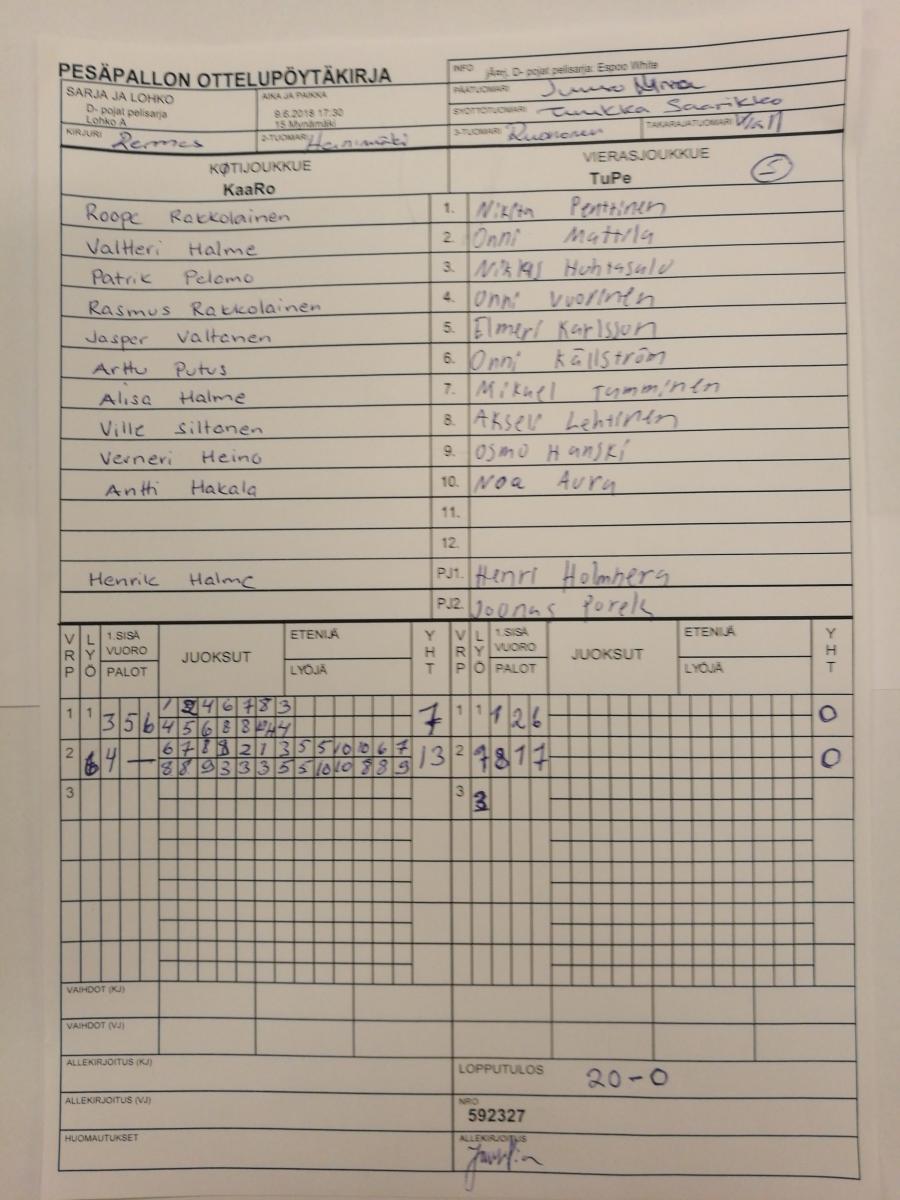 PESÄPALLON OTTELUPÖYTÄKIRJA
INFO järj. D- pojat pelisarja: Espoo White
SARJA JA LOHKO
D- pojat pelisarja
Lohko A
AIKA JA PAIKKA
9.6.2018 17:30
15 Mynämäki
PÄÄTUOMARI
SYÖTTÖTUOMARI Tuukka Saarikko
KIRJURI Remes
2-TUOMARI Heinimäki
3-TUOMARI Ruononen
TAKARAJATUOMARI
KOTIJOUKKUE
KaaRo
VIERASJOUKKUE
TuPe 5
Roope Rakkolainen 1. Nikita Penttinen
Valtteri Halme 2. Onni Mattila
Patrik Pelomo 3. Niklas Huhtasalo
Rasmus Rakkolainen 4. Onni Vuorinen
Jasper Valtanen 5. Elmeri Karlsson
Arttu Putus 6. Onni Källström
Alisa Halme 7. Mikael Tumminen
Ville Siltanen 8. Akseli Lehtinen
Verneri Heino 9. Osmo Hanski
Antti Hakala 10. Noa Aura
11.
12.
Henrik Halme PJ1. Henri Holmberg
PJ2. Joonas
VRP LYÖ 1.SISÄ VUORO PALOT JUOKSUT ETENIJÄ LYÖJÄ YHT VRP LYÖ 1.SISÄ VUORO PALOT JUOKSUT ETENIJÄ LYÖJÄ YHT
1 1 3 5 6 1 2 4 6 7 8 3 7 1 1 1 2 6 0
4 5 6 8 8
2 6 4 — 6 7 8 8 2 1 3 5 5 10 10 6 7 13 2 7 8 1 7 0
8 8 9 3 3 3 5 5 10 10 8 8 9
3 3 3
VAIHDOT (KJ)
VAIHDOT (VJ)
ALLEKIRJOITUS (KJ)
LOPPUTULOS 20-0
ALLEKIRJOITUS (VJ)
NRO
592327
HUOMAUTUKSET
ALLEKIRJOITUS